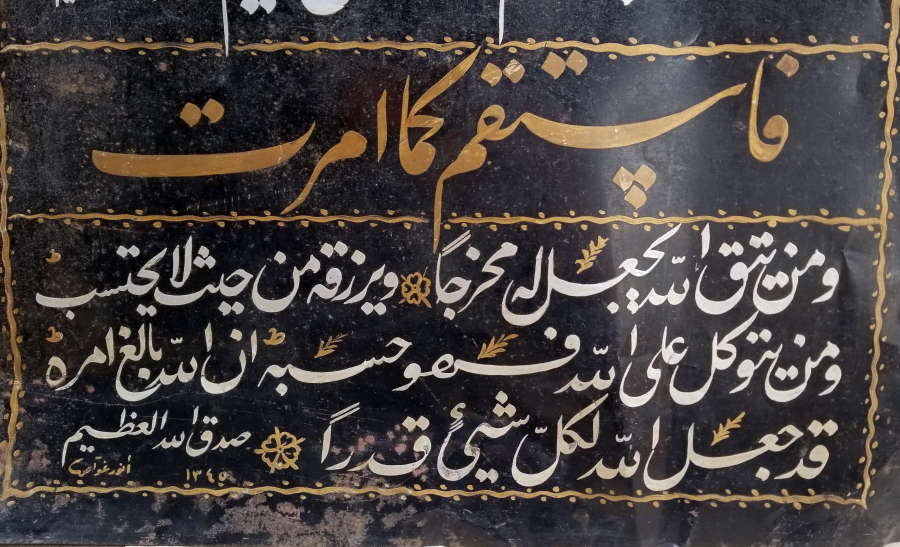 فاستقم كما امرت
ومن يتق الله يجعل له مخرجاً ويرزقه من حيث لا يحتسب
ومن يتوكل على الله فهو حسبه ان الله بالغ امره
قد جعل الله لكلّ شيئٍ قدراً صدق الله العظيم
١٣٤٥